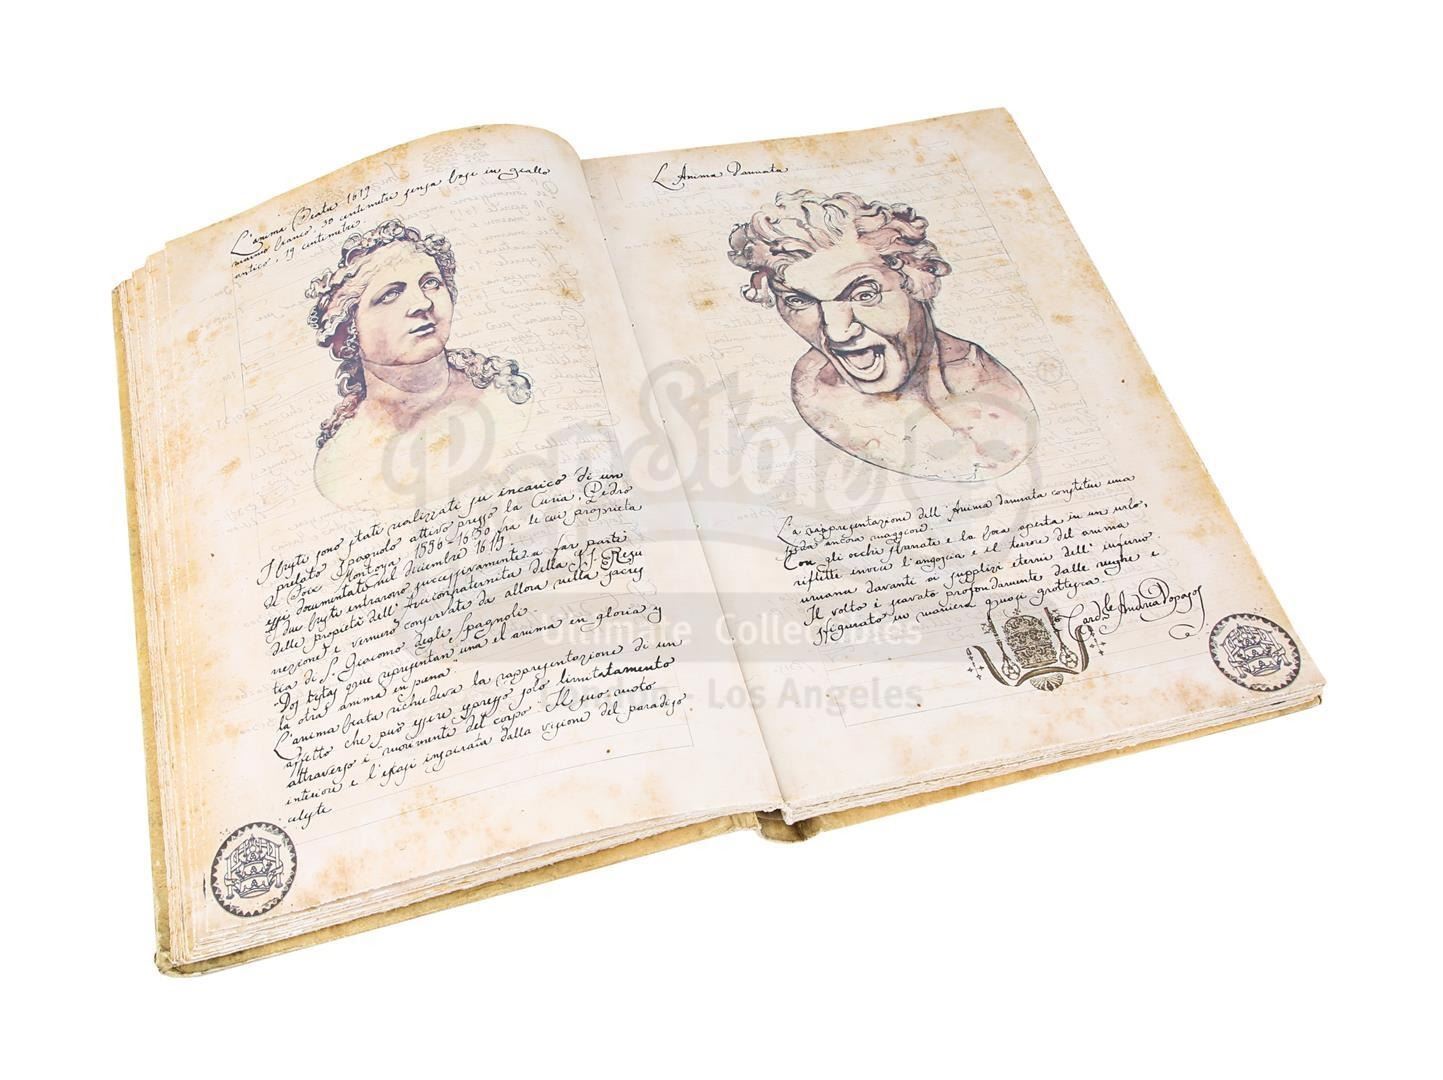 L'anima Beata 1619
marmo bianco, 30 centimetri senza base in giallo
antico, 19 centimetri.
I busti sono stati realizzati su incarico di un
prelato spagnolo attivo presso la Curia, Pedro
de Foix Montoya 1556-1630 fra le cui proprietà
essi documentati nel dicembre 1619.
I due busti entrarono successivamente a far parte
delle proprietà dell' Arciconfraternita della SS. Resu
rezione e vennero conservate da allora nella sacres
tia di S. Giacomo degli Spagnoli.
"Dos testas que representan una el anima en gloria y
la otra anima en pena"
L'anima beata richiedeva la rappresentazione di un
affetto che può essere espresso solo limitatamento
attraverso i movimenti del corpo. Il suo moto
interiore e l'estasi ingenerata dalla visione del paradiso
celeste
L'Anima Dannata
La rappresentazione dell'Anima Dannata constituì una
sfida ancora maggiore.
Con gli occhi sbarrati e la boca aperta in un urlo,
riflette invece l'angoscia e il terrore del anima
umana davanti ai supplizi eterni dell' inferno.
Il volto è scavato profondamente dalle rughe e
sfigurato in maniera quasi grottesca.
PropStore
Ultimate Collectables
London - Los Angeles